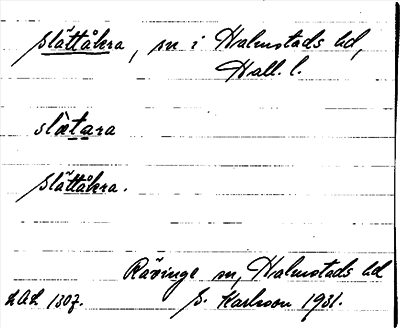 Slättåkra, sn i Halmstads hd,
Hall. l.
slätara
Slättåkra.
Rävinge sn, Halmstads hd
LAL 1307. S. Karlsson 1931.